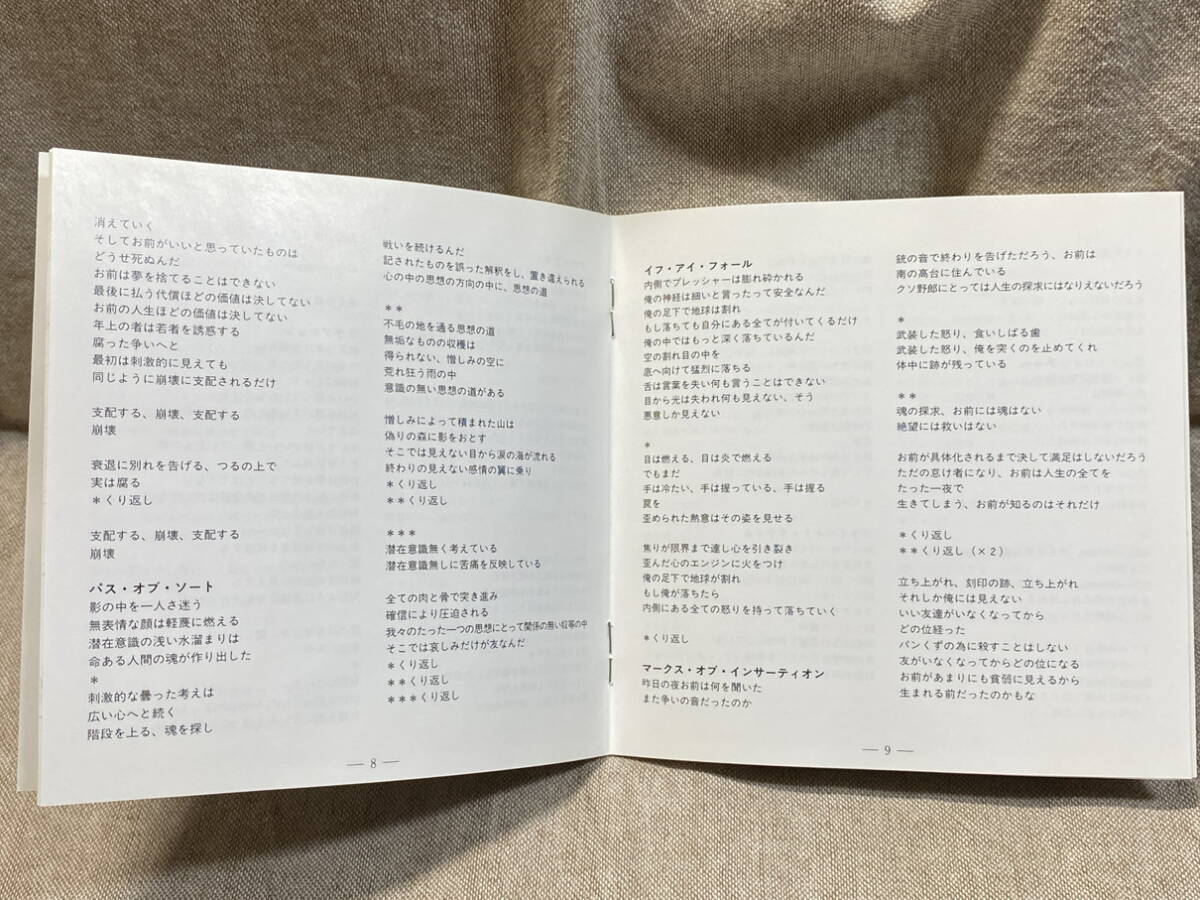 消えていく
そしてお前がいいと思っていたものは
どうせ死ぬんだ
お前は夢を捨てることはできない
最後に払う代償ほどの価値は決してない
お前の人生ほどの価値は決してない
年上の者は若者を誘惑する
腐った争いへと
最初は刺激的に見えても
同じように崩壊に支配されるだけ
支配する、崩壊、支配する
崩壊
衰退に別れを告げる、つるの上で
実は腐る
*くり返し
支配する、崩壊、支配する
崩壊
パス・オブ・ソート
影の中を一人さ迷う
無表情な顔は軽蔑に燃える
潜在意識の浅い水溜まりは
命ある人間の魂が作り出した
*
刺激的な曇った考えは
広い心へと続く
階段を上る、魂を探し
戦いを続けるんだ
記されたものを誤った解釈をし、置き違えられる
心の中の思想の方向の中に、思想の道
**
不毛の地を通る思想の道
無垢なものの収穫は
得られない、憎しみの空に
荒れ狂う雨の中
意識の無い思想の道がある
憎しみによって積まれた山は
偽りの森に影をおとす
そこでは見えない目から涙の海が流れる
終わりの見えない感情の翼に乗り
*くり返し
**くり返し
***
潜在意識無く考えている
潜在意識無しに苦痛を反映している
全ての肉と骨で突き進み
確信により圧迫される
我々のたった一つの思想にとって関係の無い収容の中
そこでは哀しみだけが友なんだ
*くり返し
**くり返し
***くり返し
― 8 ―
イフ・アイ・フォール
内側でプレッシャーは膨れ砕かれる
俺の神経は細いと言ったって安全なんだ
俺の足下で地球は割れ
もし落ちても自分にある全てが付いてくるだけ
俺の中ではもっと深く落ちているんだ
空の割れ目の中を
底へ向けて猛烈に落ちる
舌は言葉を失い何も言うことはできない
目から光は失われ何も見えない、そう
悪意しか見えない
*
目は燃える、目は炎で燃える
でもまだ
手は冷たい、手は握っている、手は握る
罠を
歪められた熱意はその姿を見せる
焦りが限界まで達し心を引き裂き
歪んだ心のエンジンに火をつけ
俺の足下で地球が割れ
もし俺が落ちたら
内側にある全ての怒りを持って落ちていく
*くり返し
マークス・オブ・インサーティオン
昨日の夜お前は何を聞いた
また争いの音だったのか
銃の音で終わりを告げただろう、お前は
南の高台に住んでいる
クソ野郎にとっては人生の探求にはなりえないだろう
*
武装した怒り、食いしばる歯
武装した怒り、俺を突くのを止めてくれ
体中に跡が残っている
**
魂の探求、お前には魂はない
絶望には救いはない
お前が具体化されるまで決して満足はしないだろう
ただの怠け者になり、お前は人生の全てを
たった一夜で
生きてしまう、お前が知るのはそれだけ
*くり返し
**くり返し（×2）
立ち上がれ、刻印の跡、立ち上がれ
それしか俺には見えない
いい友達がいなくなってから
どの位経った
パンくずの為に殺すことはしない
友がいなくなってからどの位になる
お前があまりにも貧弱に見えるから
生まれる前だったのかもな
― 9 ―